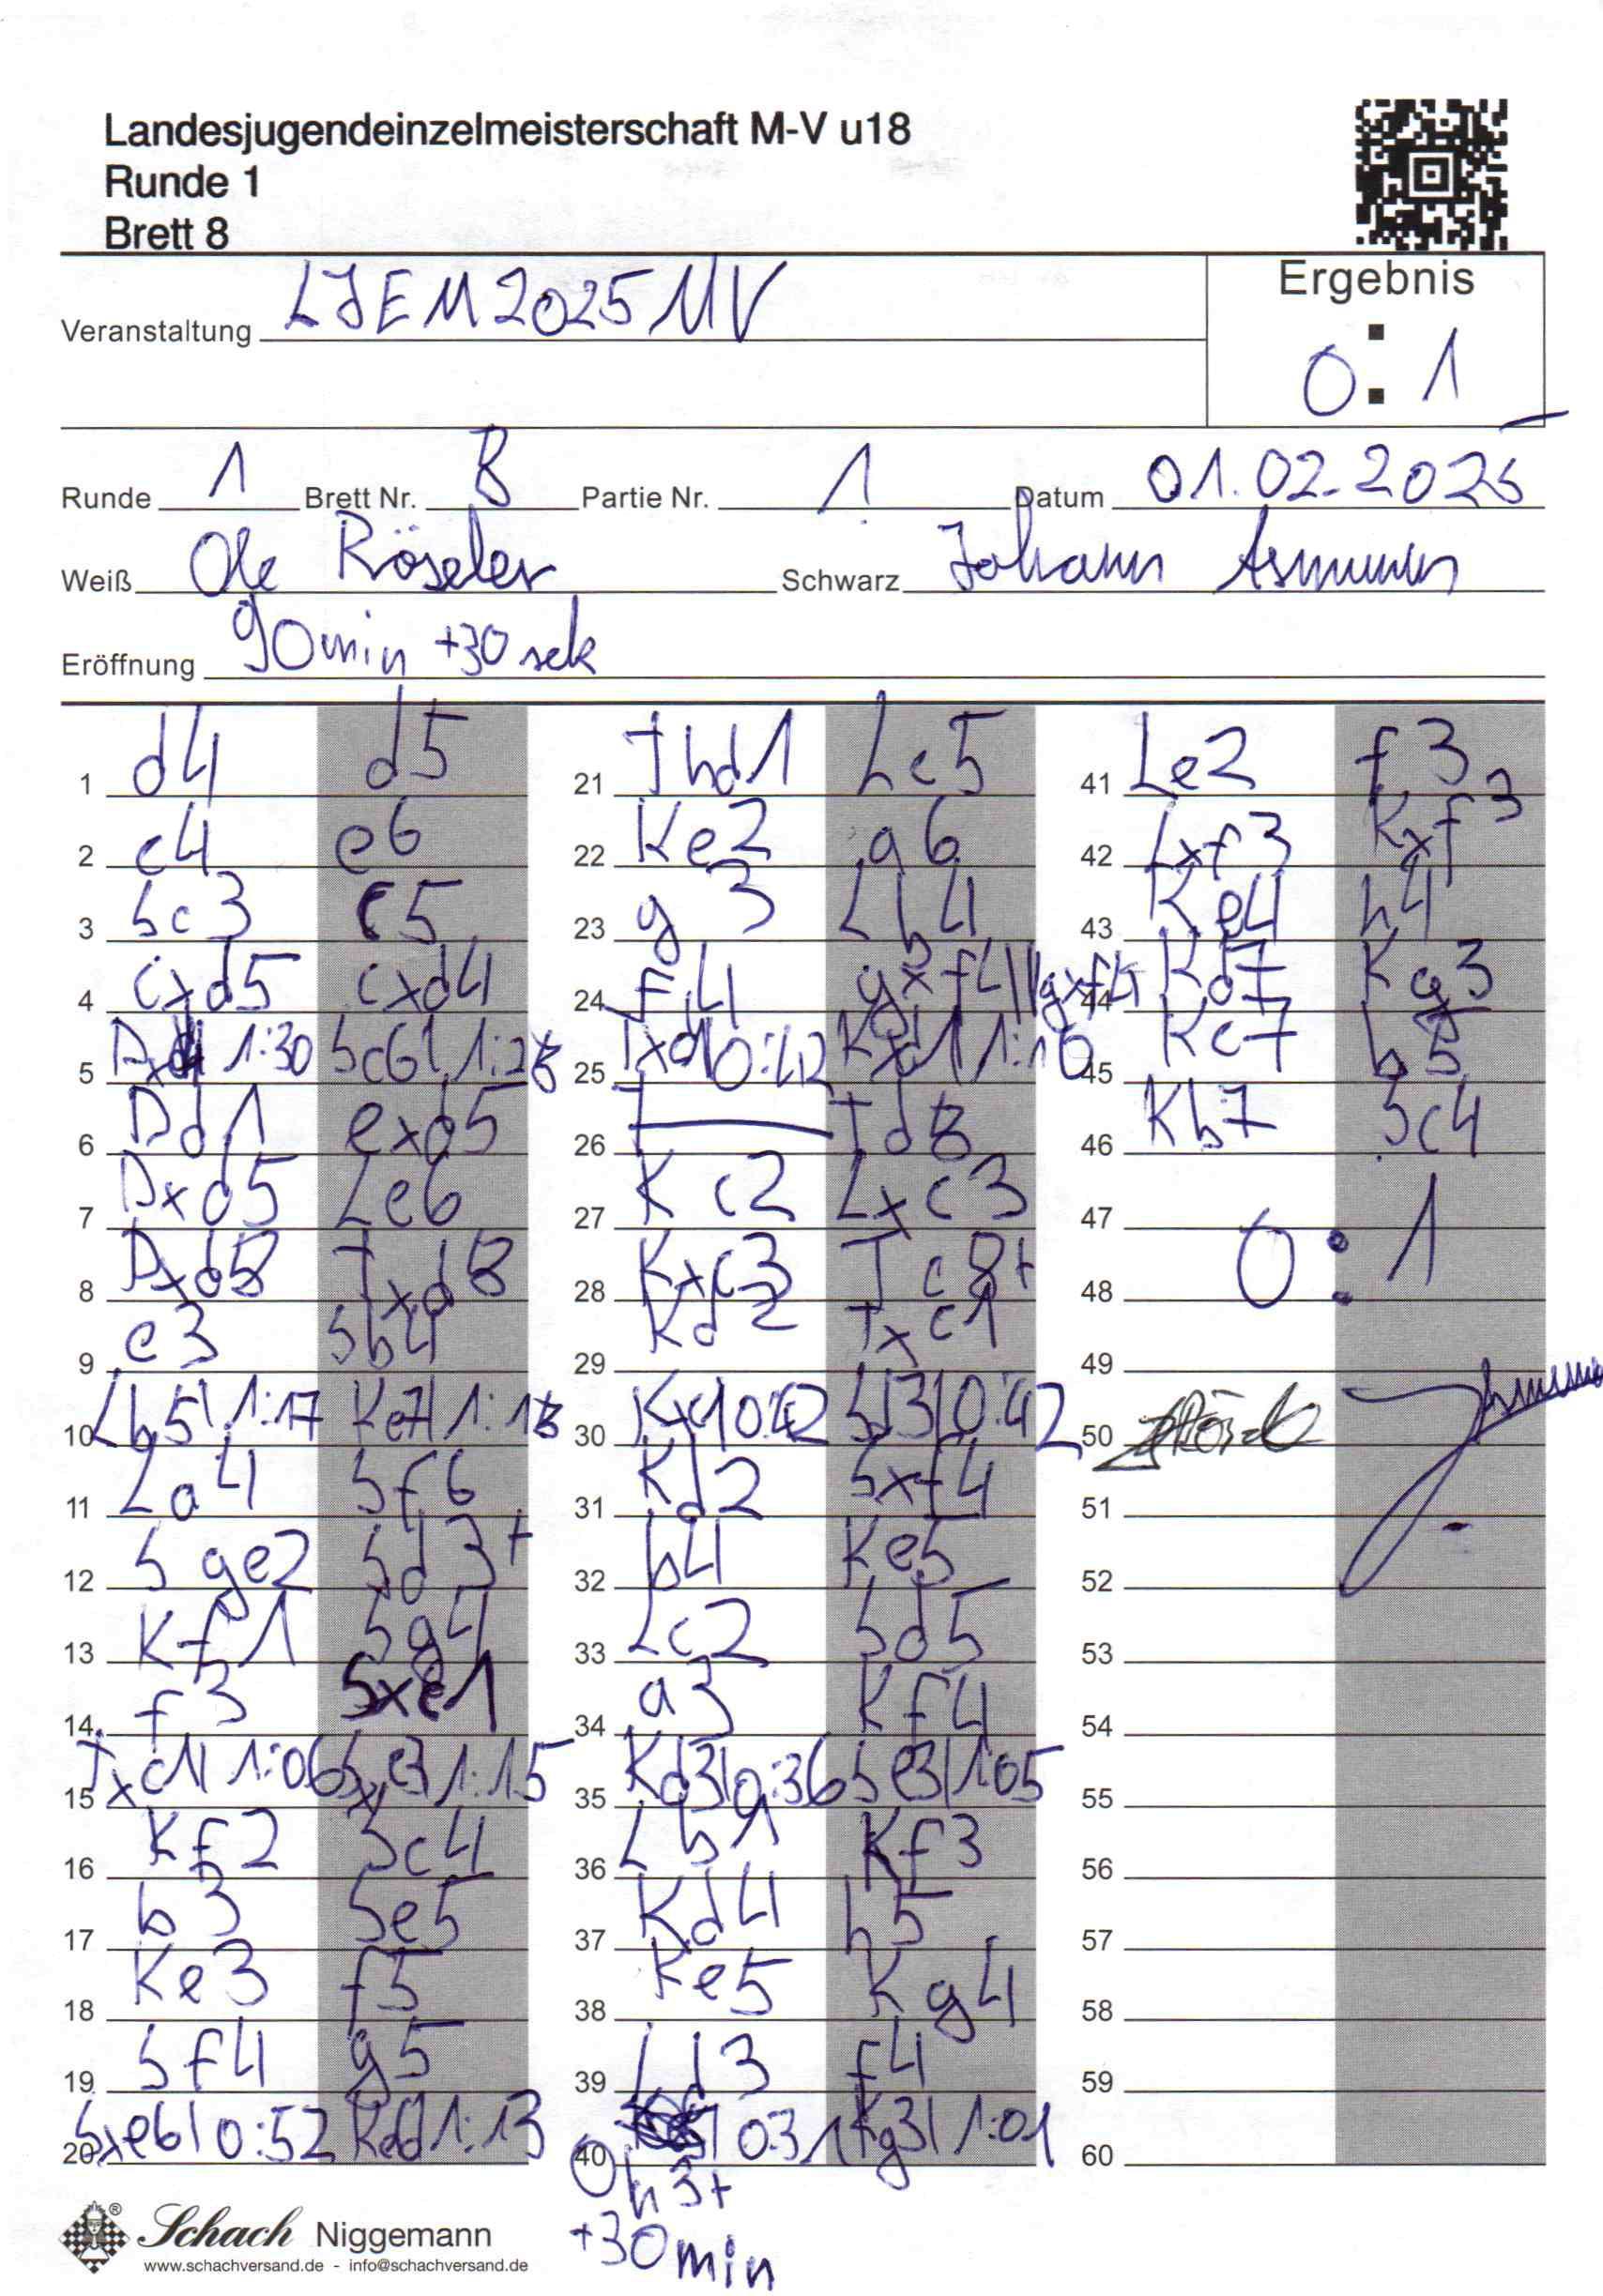 Landesjugendeinzelmeisterschaft M-V u18
Runde 1
Brett 8
Ergebnis
Veranstaltung LJEM 2025 MV
0 : 1
Runde 1 Brett Nr. 8 Partie Nr. 1 Datum 01.02.2025
Weiß Ole Röseler Schwarz Johann
Eröffnung 90min +30sek
1 d4 d5
2 c4 e6
3 Sc3 c5
4 cxd5 cxd4
5 Dxd4 1:30 Sc6 | 1:28
6 Dd1 exd5
7 Dxd5 Le6
8 Dxd8 Txd8
9 e3 Sb4
10 Lb5 | 1:17 Ke7 | 1:18
11 La4 Sf6
12 Sge2 Sd3+
13 Kf1 Sg4
14 f3 Sxc1
15 Txc1 | 1:06 Sxe3 | 1:15
16 Kf2 Sc4
17 b3 Se5
18 Ke3 f5
19 Sf4 g5
20 Sxe6 | 0:52 Kxe6 | 1:13
21 Thd1 Lc5
22 Ke2 a6
23 g3 Lb4
24 f4 gxf4 | gxf4
25 Txd1 0:42 Kxd1 1:10
26 Td8
27 Kc2 Lxc3
28 Kxc3 Tc8+
29 Kd2 Txc1
30 Kxc1 0:42 Sd3 | 0:42
31 Kd2 Sxf4
32 b4 Ke5
33 Lc2 Sd5
34 a3 Kf4
35 Kd3 | 0:36 Se3 | 1:05
36 Lb1 Kf3
37 Kd4 h5
38 Ke5 Kg4
39 Ld3 f4
40 | 0:31 Kg3 | 1:01
h3+
+30min
41 Le2 f3
42 Lxf3 Kxf3
43 Ke4 h4
44 Kd7 Kg3
45 Kc7 b5
46 Kb7 Sc4
47
48 0 : 1
49
50
51
52
53
54
55
56
57
58
59
60
Schach Niggemann
www.schachversand.de - info@schachversand.de